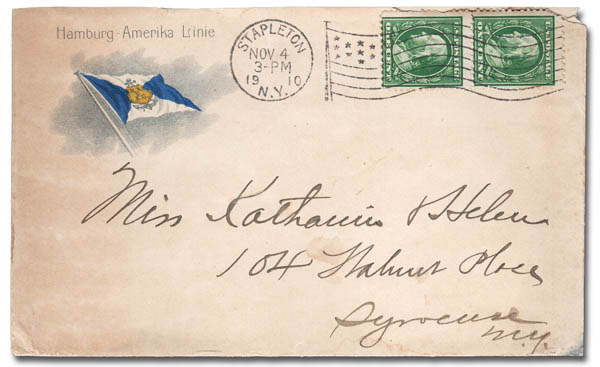 Hamburg-Amerika Linie
STAPLETON
NOV 4
3-PM
19 10
N.Y.
Miss Katharin & Helen
104 Walnut Place
Syracuse
N.Y.